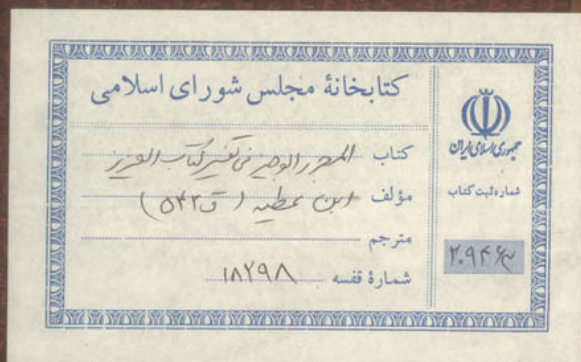 کتابخانهٔ مجلس شورای اسلامی
کتاب المحرر الوجیز فی تفسیر کتاب العزیز
مؤلف ابن عطیه (ق ۵۴۲)
مترجم
شمارهٔ قفسه ۱۸۲۹۸
جمهوری اسلامی ایران
شماره ثبت کتاب
۲۰۹۴۶۳